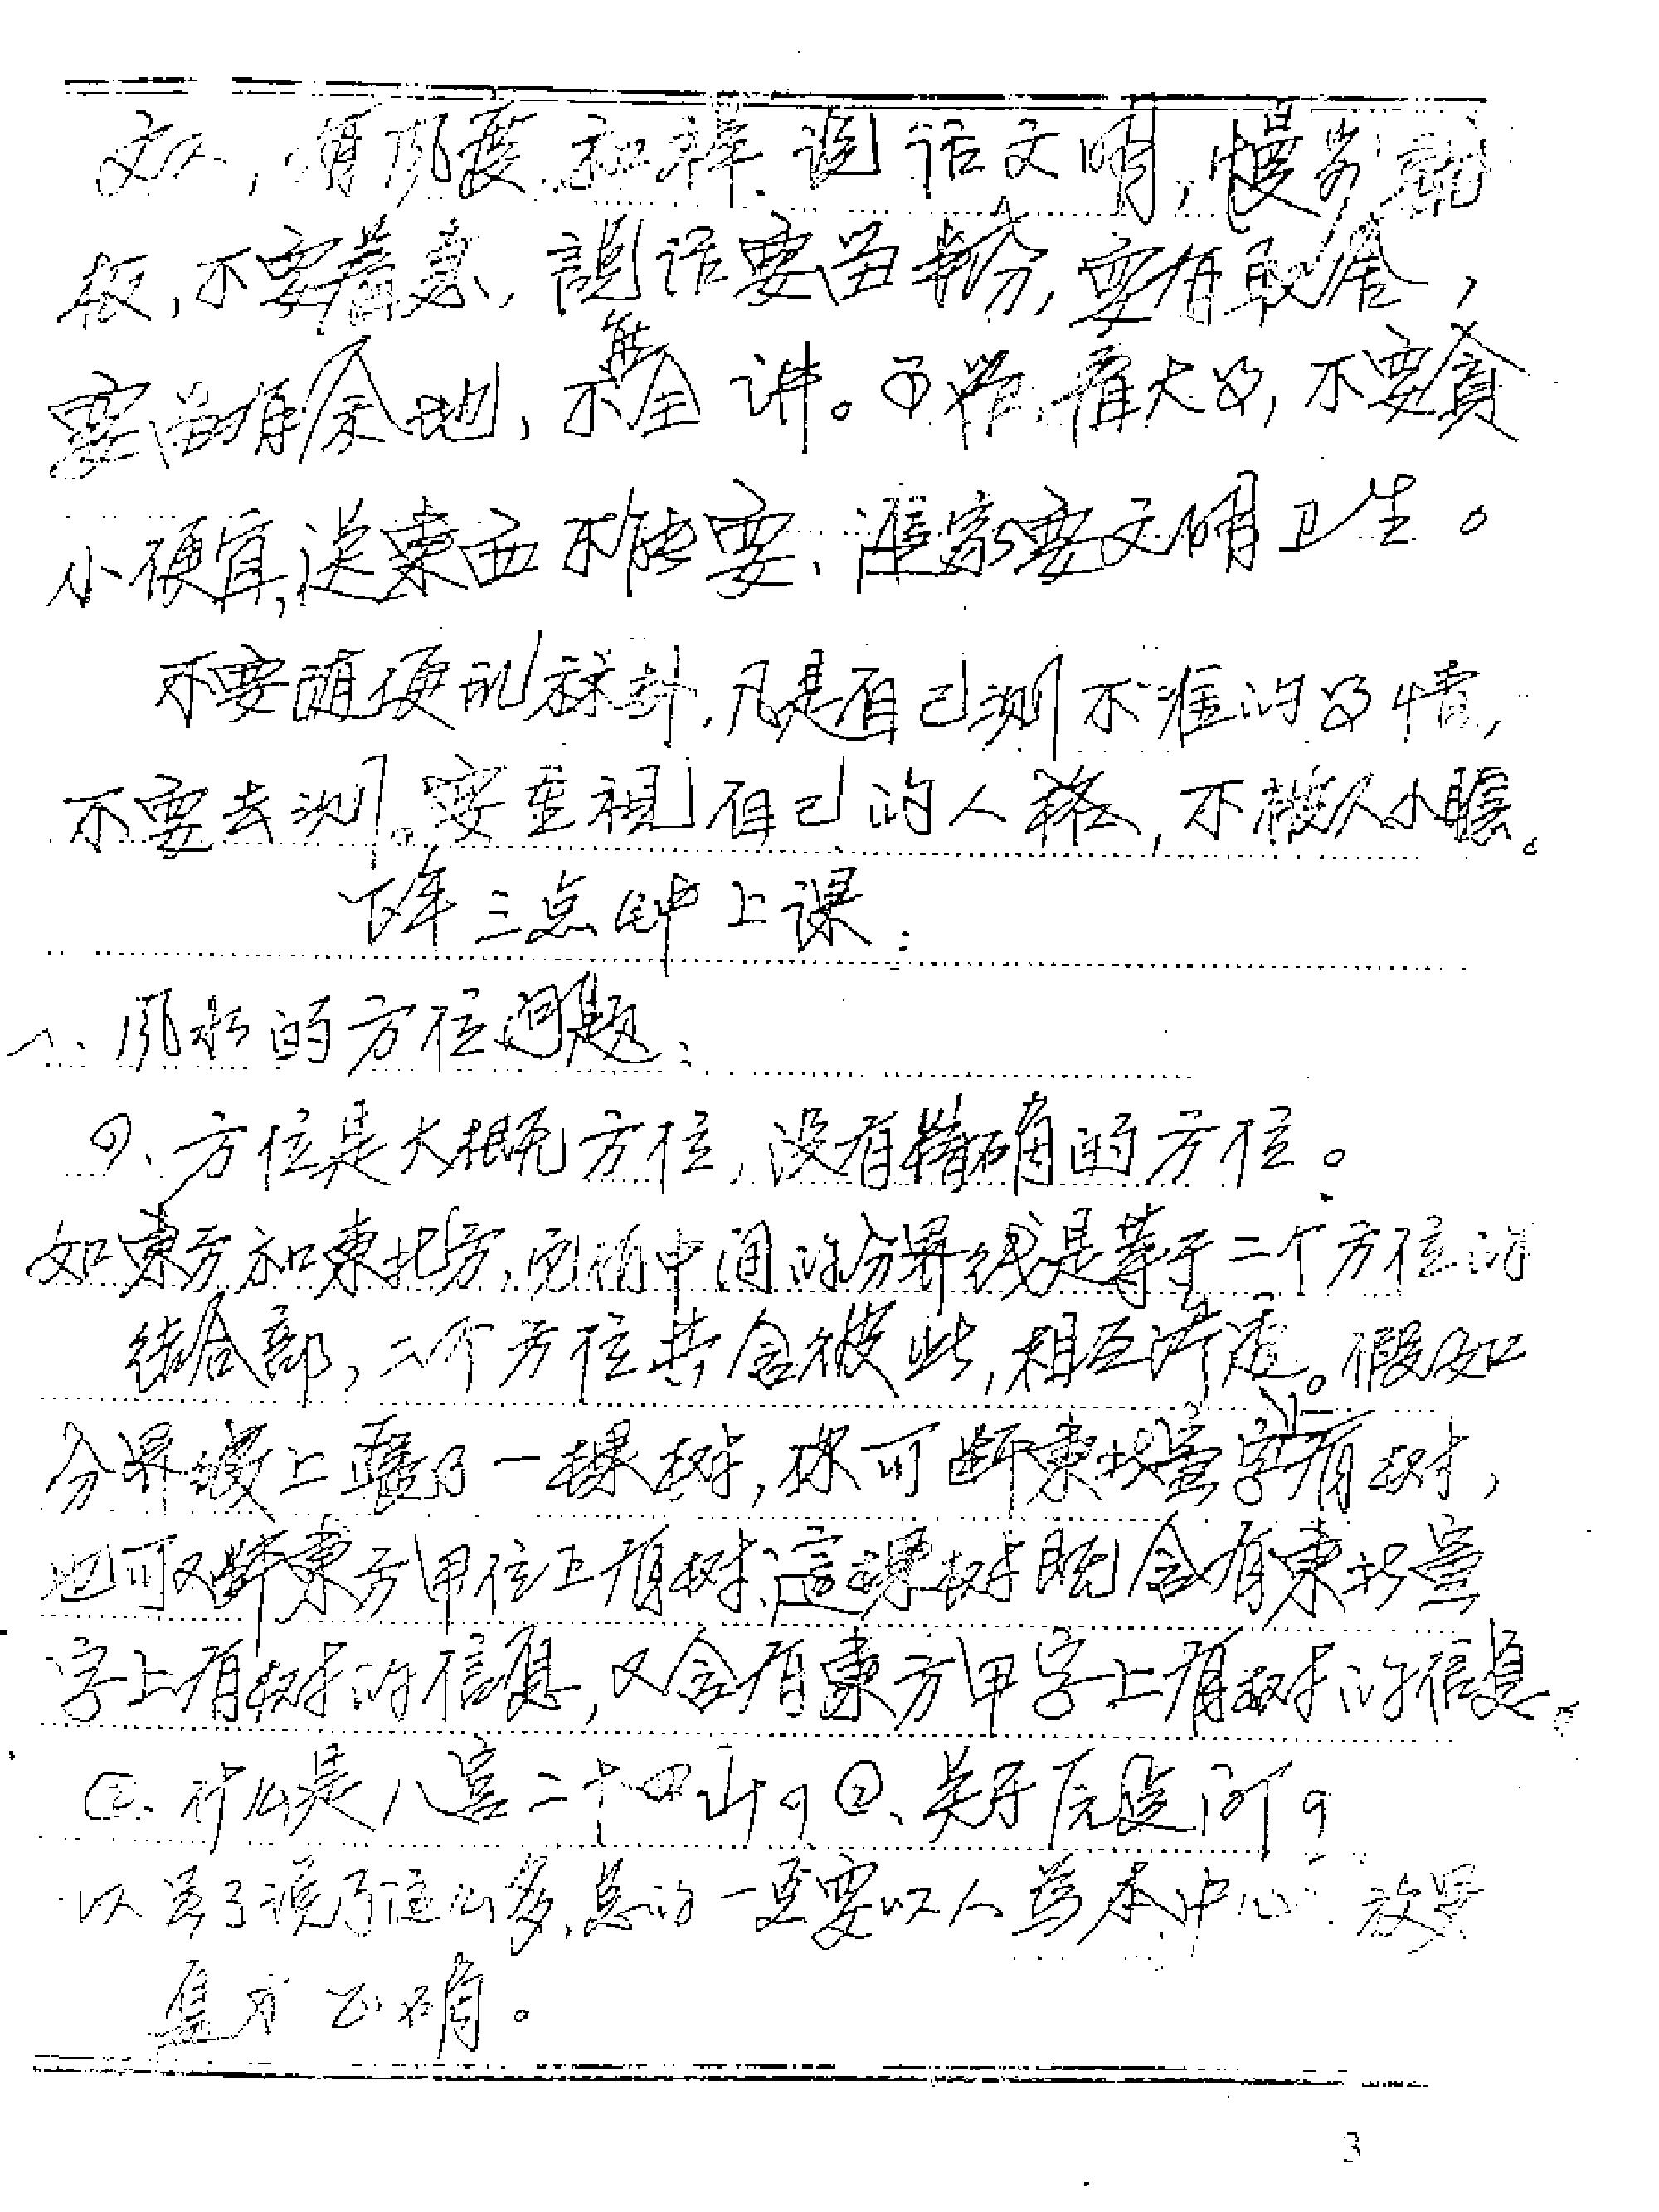 文人,有风度.和祥.说话文明,慢
板,不要着急,說话要留余分,要有取舍,
要留有余地,不能全讲。不贪大,不要貪
小便宜,送東西不能要、進家要文明卫生。
不要随便乱断卦.凡是自己测不准的事情,
不要去测。要重視自己的人格,不被人小瞧。
下午三点钟上课:
一、风水的方位问题:
①、方位是大概方位,没有精确的方位。
如東方和東北方,它们中间的分界线是等于二个方位的
结合部,二个方位共含彼此,相互渗透。假如
分界線上長了一棵树,你可断東北寅字上有树,
也可以断東方甲位上有树,這棵树既含有東北寅
字上有树的信息,又含有東方甲字上有树的信息。
②、什么是八宫二十四山?②、关于
以上说了这么多,总的一定要以人為本中心
才正确。
3